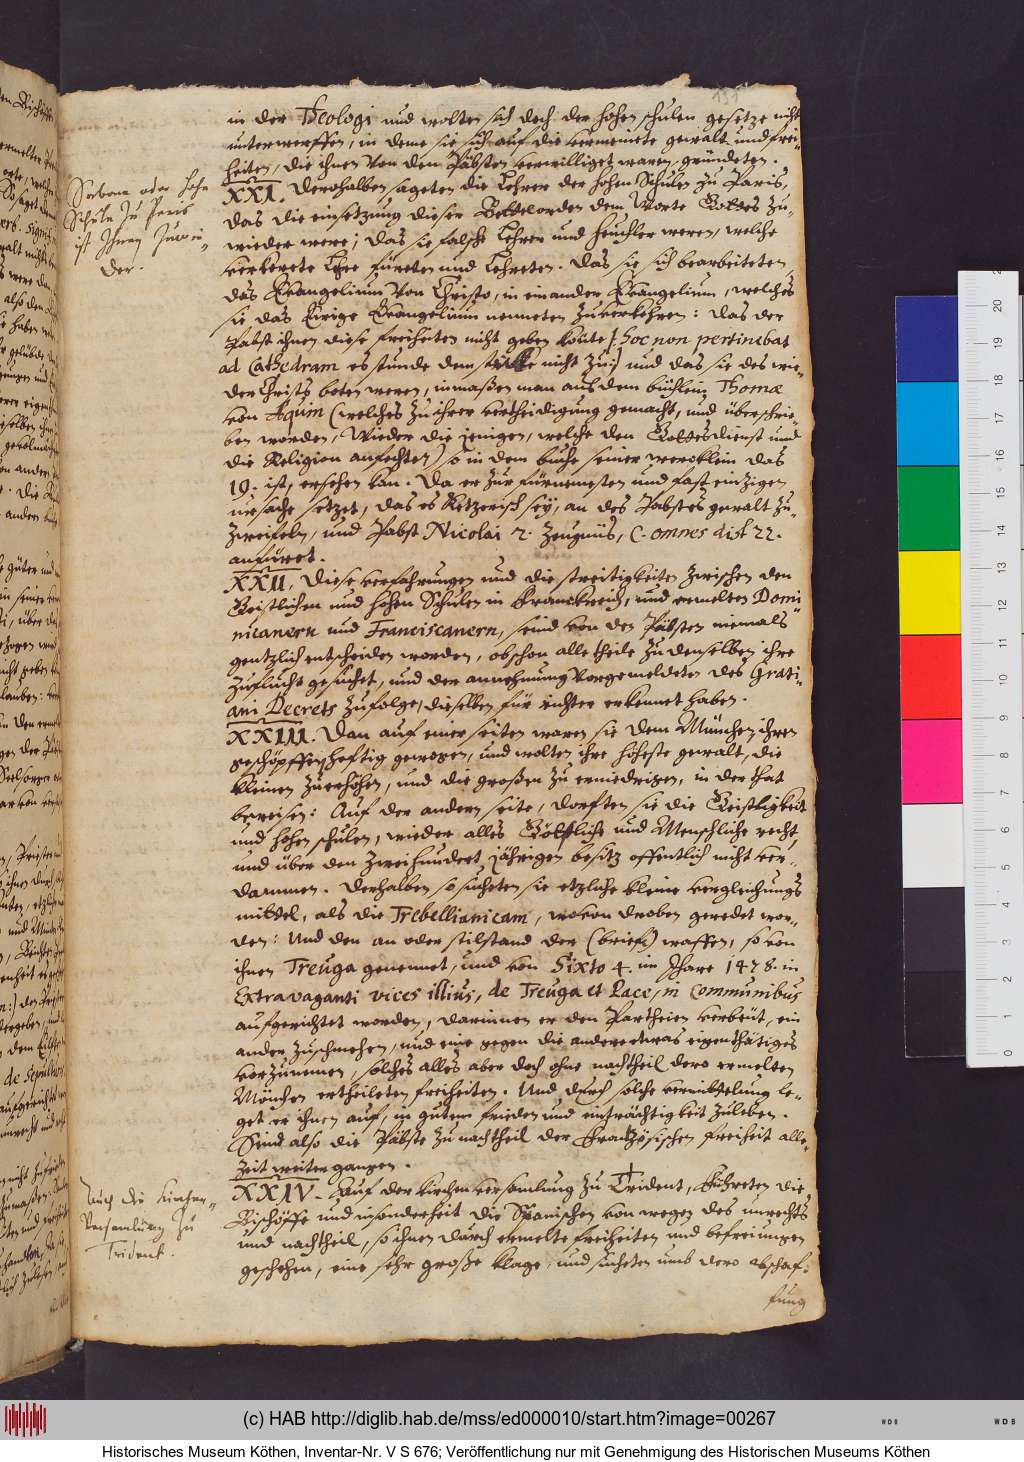 in der Theologi und wolten sich doch der hohen schulen gesetze nicht
unterwerffen, in deme sie sich auf die vermeinete gewalt und frei-
heiten, die ihnen von den Päbsten verwilliget waren, gründeten.
XXI. Derohalben sageten die Lehrer der hohen Schulen zu Paris,
das die einsetzung dieser Bettelorden dem Worte Gottes zu-
wieder were, das sie falsche Lehrer und heuchler weren, welche
verkerete Lehre füreten und Lehreten. Das sie sich bearbeiteten,
das Evangelium von Christo, in ein ander Evangelium, welches
sie das Ewige Evangelium nenneten zuverkehren: das der
Pabst ihnen diese freiheiten nicht geben könte [hoc non pertinebat
ad Cathedram es stunde dem stuhle nicht zu] und das sie des wie-
der Christs boten weren, inmaßen man aus dem büchlein Thomæ
von Aquin (welches zu ihrer vertheidigung gemacht, und überschrie-
ben worden, Wieder die jenigen, welche den Gottesdienst und
die Religion anfechten) so in dem buche seiner wercklein das
19. ist, ersehen kan. Da er zur fürnemesten und fast einzigen
ursache setzet, das es Ketzerisch sey, an des Pabstes gewalt zu-
zweifeln, und Pabst Nicolai 2. Zeugnüs, C. omnes dist 22.
anfüret.
XXII. Diese verfahrungen und die streitigkeiten zwischen den
Geistlichen und hohen Schulen in Franckreich, und ermelten Domi
nicanern und Franciscanern, seind von den Päbsten niemals
gentzlich entscheiden worden, obschon alle theile zu denselben ihre
zuflucht gesuchet, und der annehmung vorgemeldeten des Grati-
ani Decrets zufolge, dieselben für richter erkennet haben.
XXIII. Dan auf einer seiten waren sie dem München ihren
geschöpffen, heftig gewogen, und wolten ihre höheste gewalt, die
kleinen zuerhöhen, und die großen zu erniedrigen, in der that
beweisen: Auf der andern seite, dorften sie die Geistligkeit
und hohen schulen, wieder alles Göttlich und Menschliche recht,
und über den zweihundert jährigen besitz offentlich nicht ver-
dammen. Derhalben so sucheten sie etzliche kleine vergleichungs
mittel, als die Trebellianicam, wovon droben geredet wor-
den: Und den an oder stilstand der (briefe) waffen, so von
ihnen Treuga genennet, und von Sixto 4. im Jhare 1478. in
Extravaganti vices illius, de Treuga et Pace, in communibus
aufgerichtet worden, darinnen er den Partheien verbeut, ein
ander zuschmehen, und eine gegen die andere etwas eigenthätiges
vorzunemen, solches alles aber doch ohne nachtheil dero ermelten
Mönchen ertheileten freiheiten. Und durch solche vermittelung le-
get er ihnen auf, in gutem frieden und einträchtigkeit zuleben.
Seind also die Päbste zu nachtheil der Frantzösischen freiheit alle-
zeit weiter gangen.
XXIV. Auf der kirchen versamlung zu Trident, führeten die
Bischöffe und insonderheit die Spanischen von wegen des unrechts
und nachtheil, so ihnen durch ermelte freiheiten und befreiungen
geschehen, eine sehr große klage, und sucheten umb dero abschaf-
fung
Sorbona oder Hohe
Schule Zu Paris
ist Ihnen Zuwi-
der.
Auch die Kirchen-
Versamlung Zu
Trident.
0 1 2 3 4 5 6 7 8 9 10 11 12 13 14 15 16 17 18 19 20
(c) HAB http://diglib.hab.de/mss/ed000010/start.htm?image=00267
WDB
WDB
Historisches Museum Köthen, Inventar-Nr. V S 676; Veröffentlichung nur mit Genehmigung des Historischen Museums Köthen